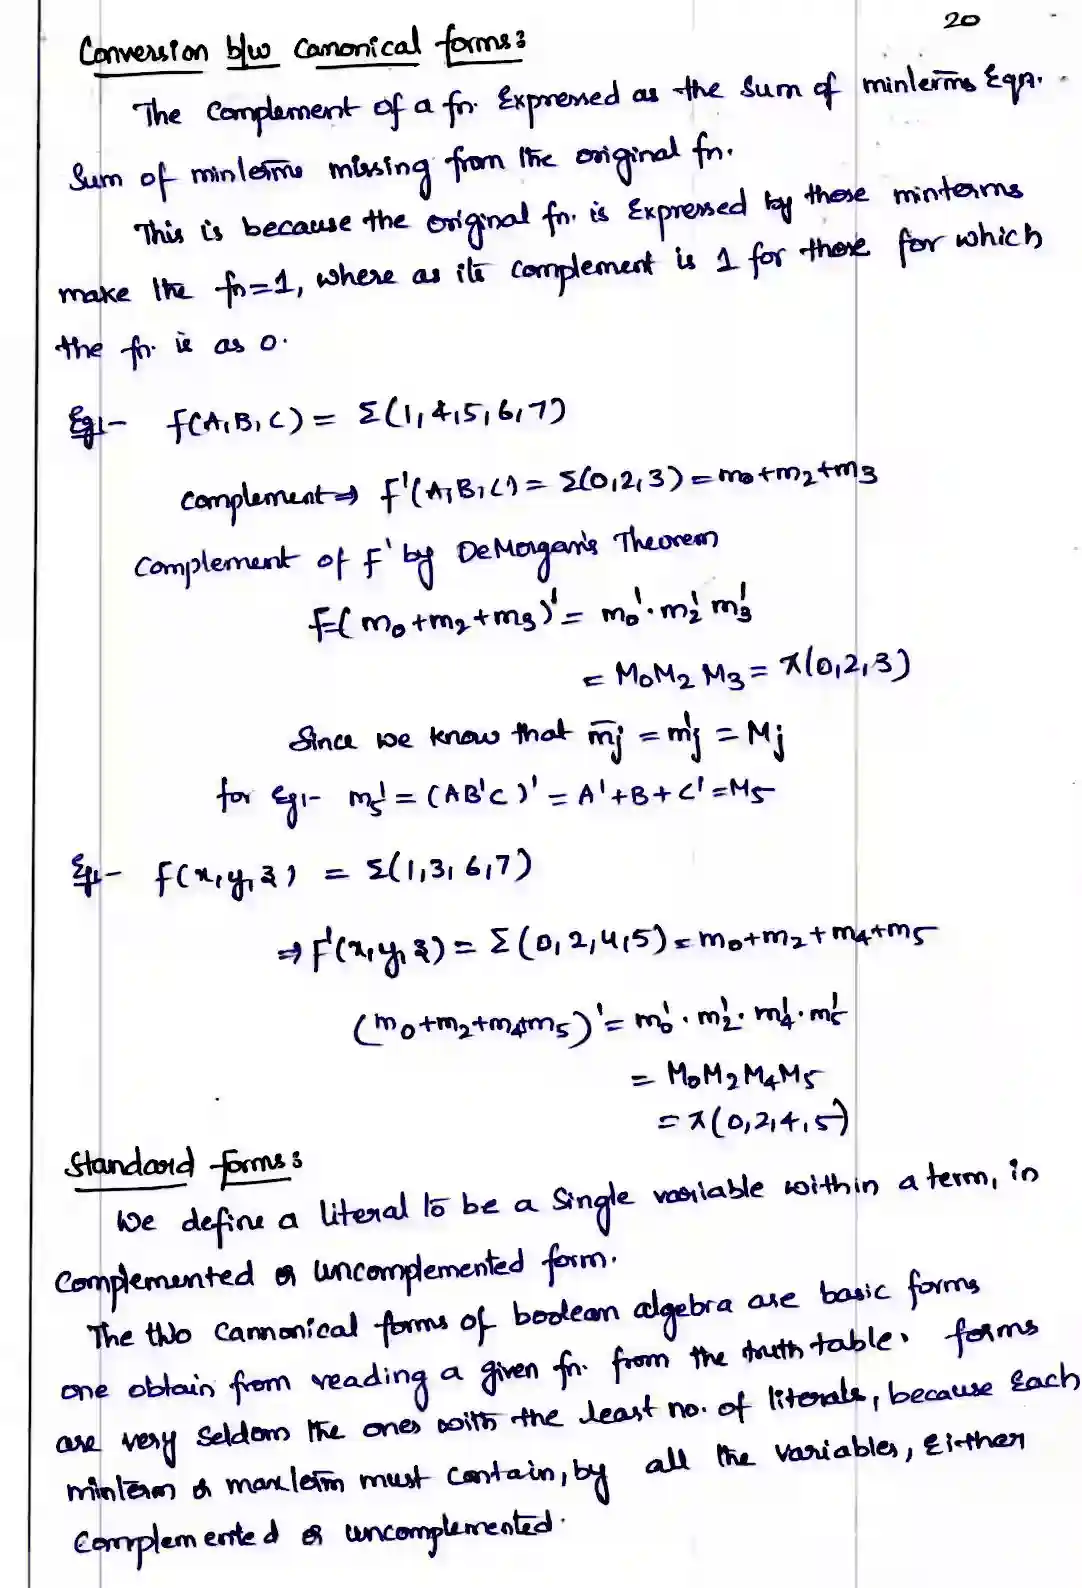 20
Conversion b/w Canonical forms:
The Complement of a fn. Expressed as the Sum of minterms Eqn.
Sum of minterms missing from the original fn.
This is because the original fn. is Expressed by those minterms
make the fn=1, where as its complement is 1 for those for which
the fn. is as 0.
Eg:- F(A,B,C) = Σ(1,4,5,6,7)
complement ⇒ F'(A,B,C) = Σ(0,2,3) = m0+m2+m3
Complement of F' by DeMorgan's Theorem
F=(m0+m2+m3)' = m0'.m2' m3'
= M0M2 M3 = π(0,2,3)
Since we know that m̄j = m'j = Mj
for Eg:- m5' = (AB'C)' = A'+B+C' = M5
Eg:- F(x,y,z) = Σ(1,3,6,7)
⇒ F'(x,y,z) = Σ(0,2,4,5) = m0+m2+m4+m5
(m0+m2+m4+m5)' = m0'.m2'.m4'.m5'
= M0M2M4M5
= π(0,2,4,5)
Standard forms:
We define a literal to be a Single variable within a term, in
Complemented or uncomplemented form.
The two Cannonical forms of boolean algebra are basic forms
one obtain from reading a given fn. from the truth table. forms
are very seldom the ones with the least no. of literals, because Each
minterm or maxterm must contain, by all the variables, Either
Complemented or uncomplemented.